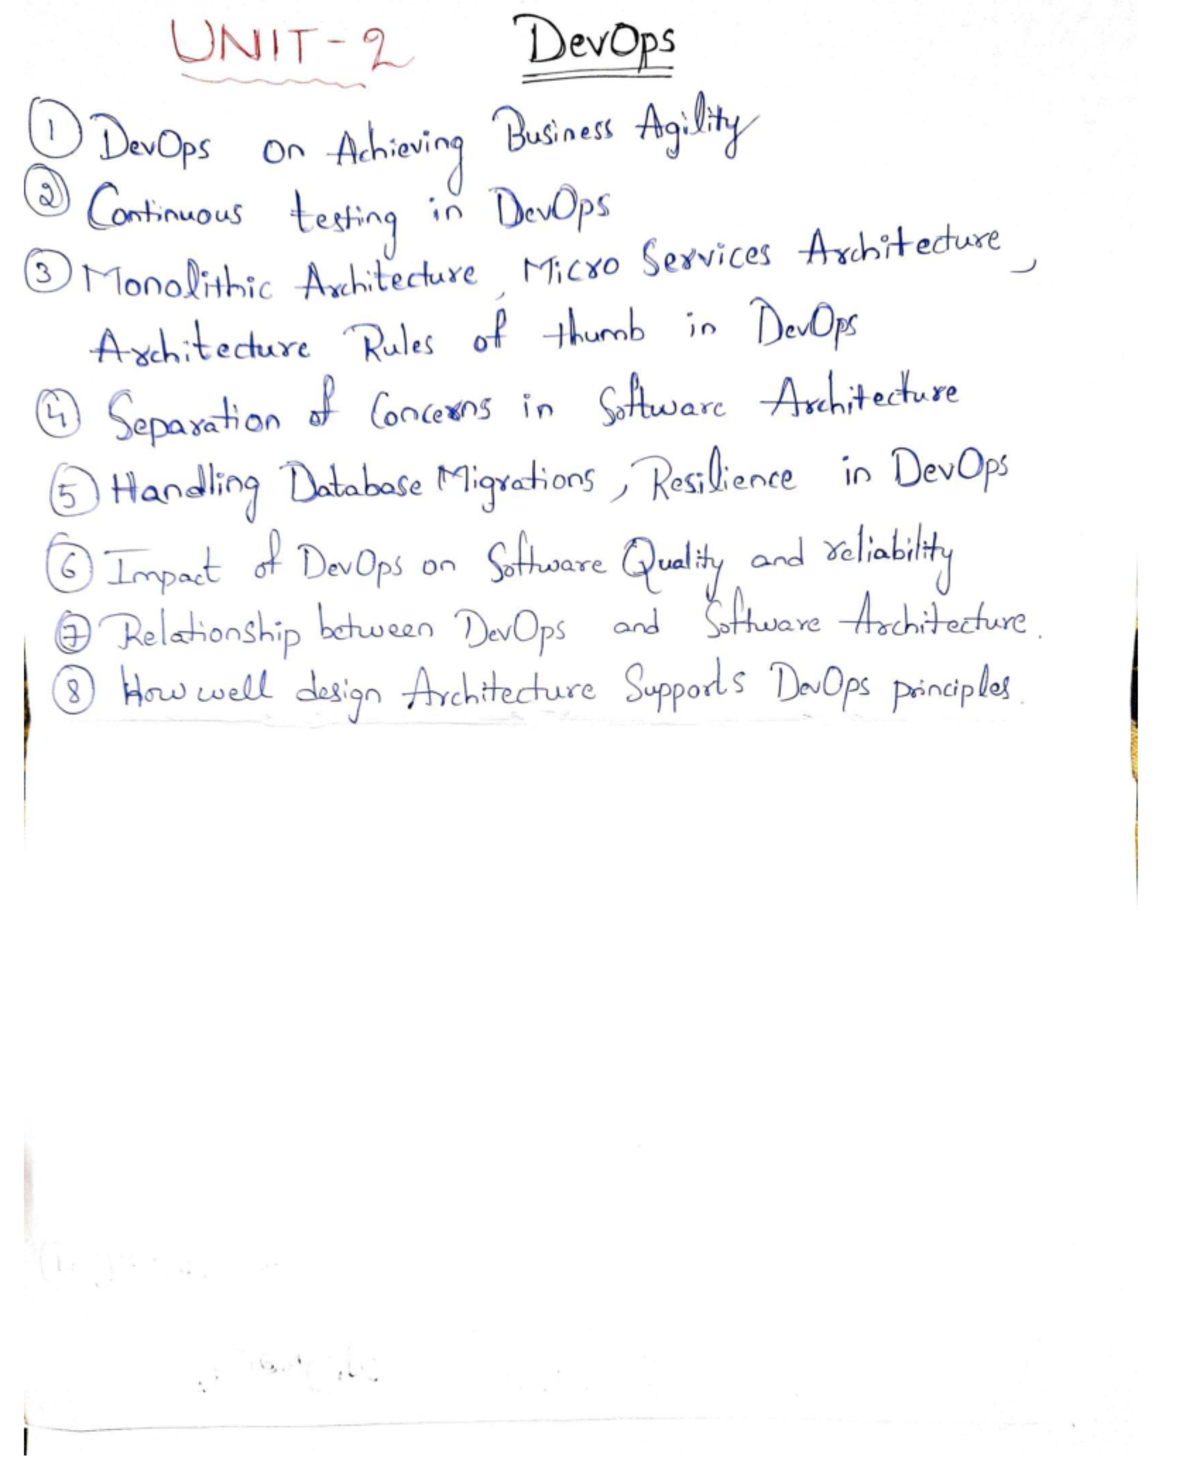 UNIT-2 DevOps
① DevOps on Achieving Business Agility
② Continuous testing in DevOps
③ Monolithic Architecture, Micro Services Architecture,
Architecture Rules of thumb in DevOps
④ Separation of Concerns in Software Architecture
⑤ Handling Database Migrations, Resilience in DevOps
⑥ Impact of DevOps on Software Quality and reliability
⑦ Relationship between DevOps and Software Architecture.
⑧ How well design Architecture Supports DevOps principles.